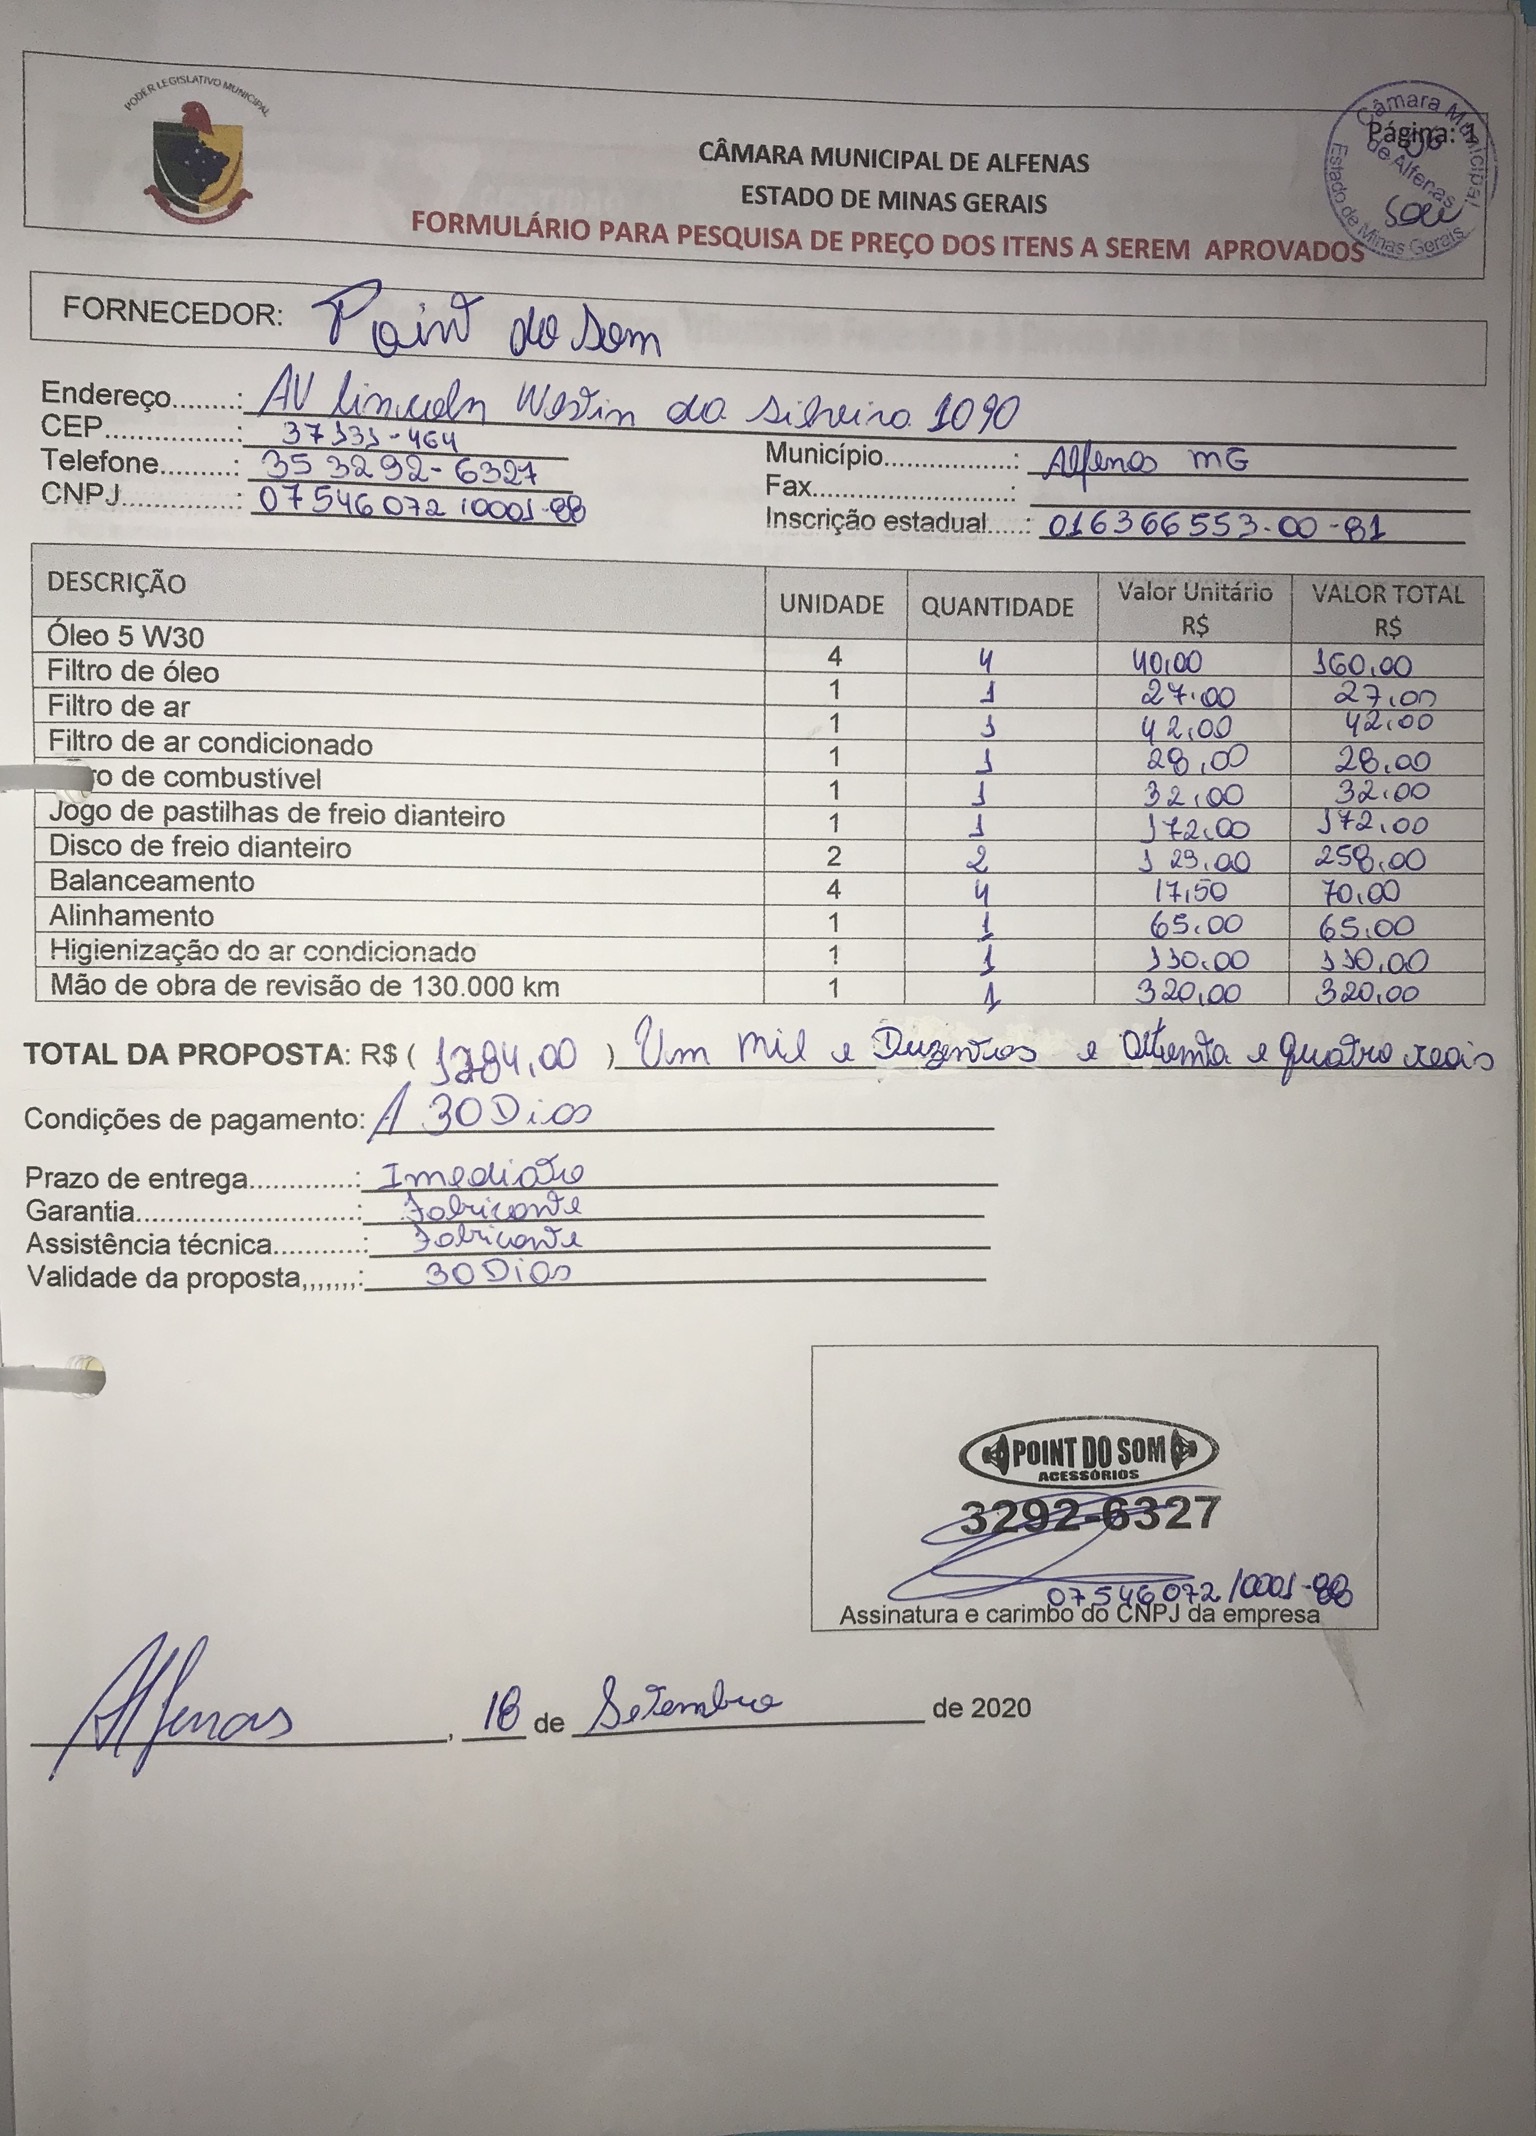 PODER LEGISLATIVO MUNICIPAL
CÂMARA MUNICIPAL DE ALFENAS
ESTADO DE MINAS GERAIS
FORMULÁRIO PARA PESQUISA DE PREÇO DOS ITENS A SEREM APROVADOS
Página: 1
Câmara Municipal de Alfenas
Estado de Minas Gerais
FORNECEDOR: Point do Som
Endereço........: AV Lincoln Westin da Silveira 1090
CEP.................: 37131-464
Município................: Alfenas MG
Telefone.........: 35 3292-6327
Fax.........................:
CNPJ...............: 07546072/0001-88
Inscrição estadual.....: 016366553.00-81
DESCRIÇÃO UNIDADE QUANTIDADE Valor Unitário R$ VALOR TOTAL R$
Óleo 5 W30 4 4 40,00 160,00
Filtro de óleo 1 1 27,00 27,00
Filtro de ar 1 1 42,00 42,00
Filtro de ar condicionado 1 1 28,00 28,00
ro de combustível 1 1 32,00 32,00
Jogo de pastilhas de freio dianteiro 1 1 172,00 172,00
Disco de freio dianteiro 2 2 129,00 258,00
Balanceamento 4 4 17,50 70,00
Alinhamento 1 1 65,00 65,00
Higienização do ar condicionado 1 1 110,00 110,00
Mão de obra de revisão de 130.000 km 1 1 320,00 320,00
TOTAL DA PROPOSTA: R$ ( 1284,00 ) Um mil e Duzentos e Oitenta e quatro reais
Condições de pagamento: A 30 Dias
Prazo de entrega.............: Imediato
Garantia...........................: Fabricante
Assistência técnica...........: Fabricante
Validade da proposta,,,,,,,: 30 Dias
POINT DO SOM
ACESSÓRIOS
3292-6327
07546072/0001-88
Assinatura e carimbo do CNPJ da empresa
Alfenas, 18 de Setembro de 2020